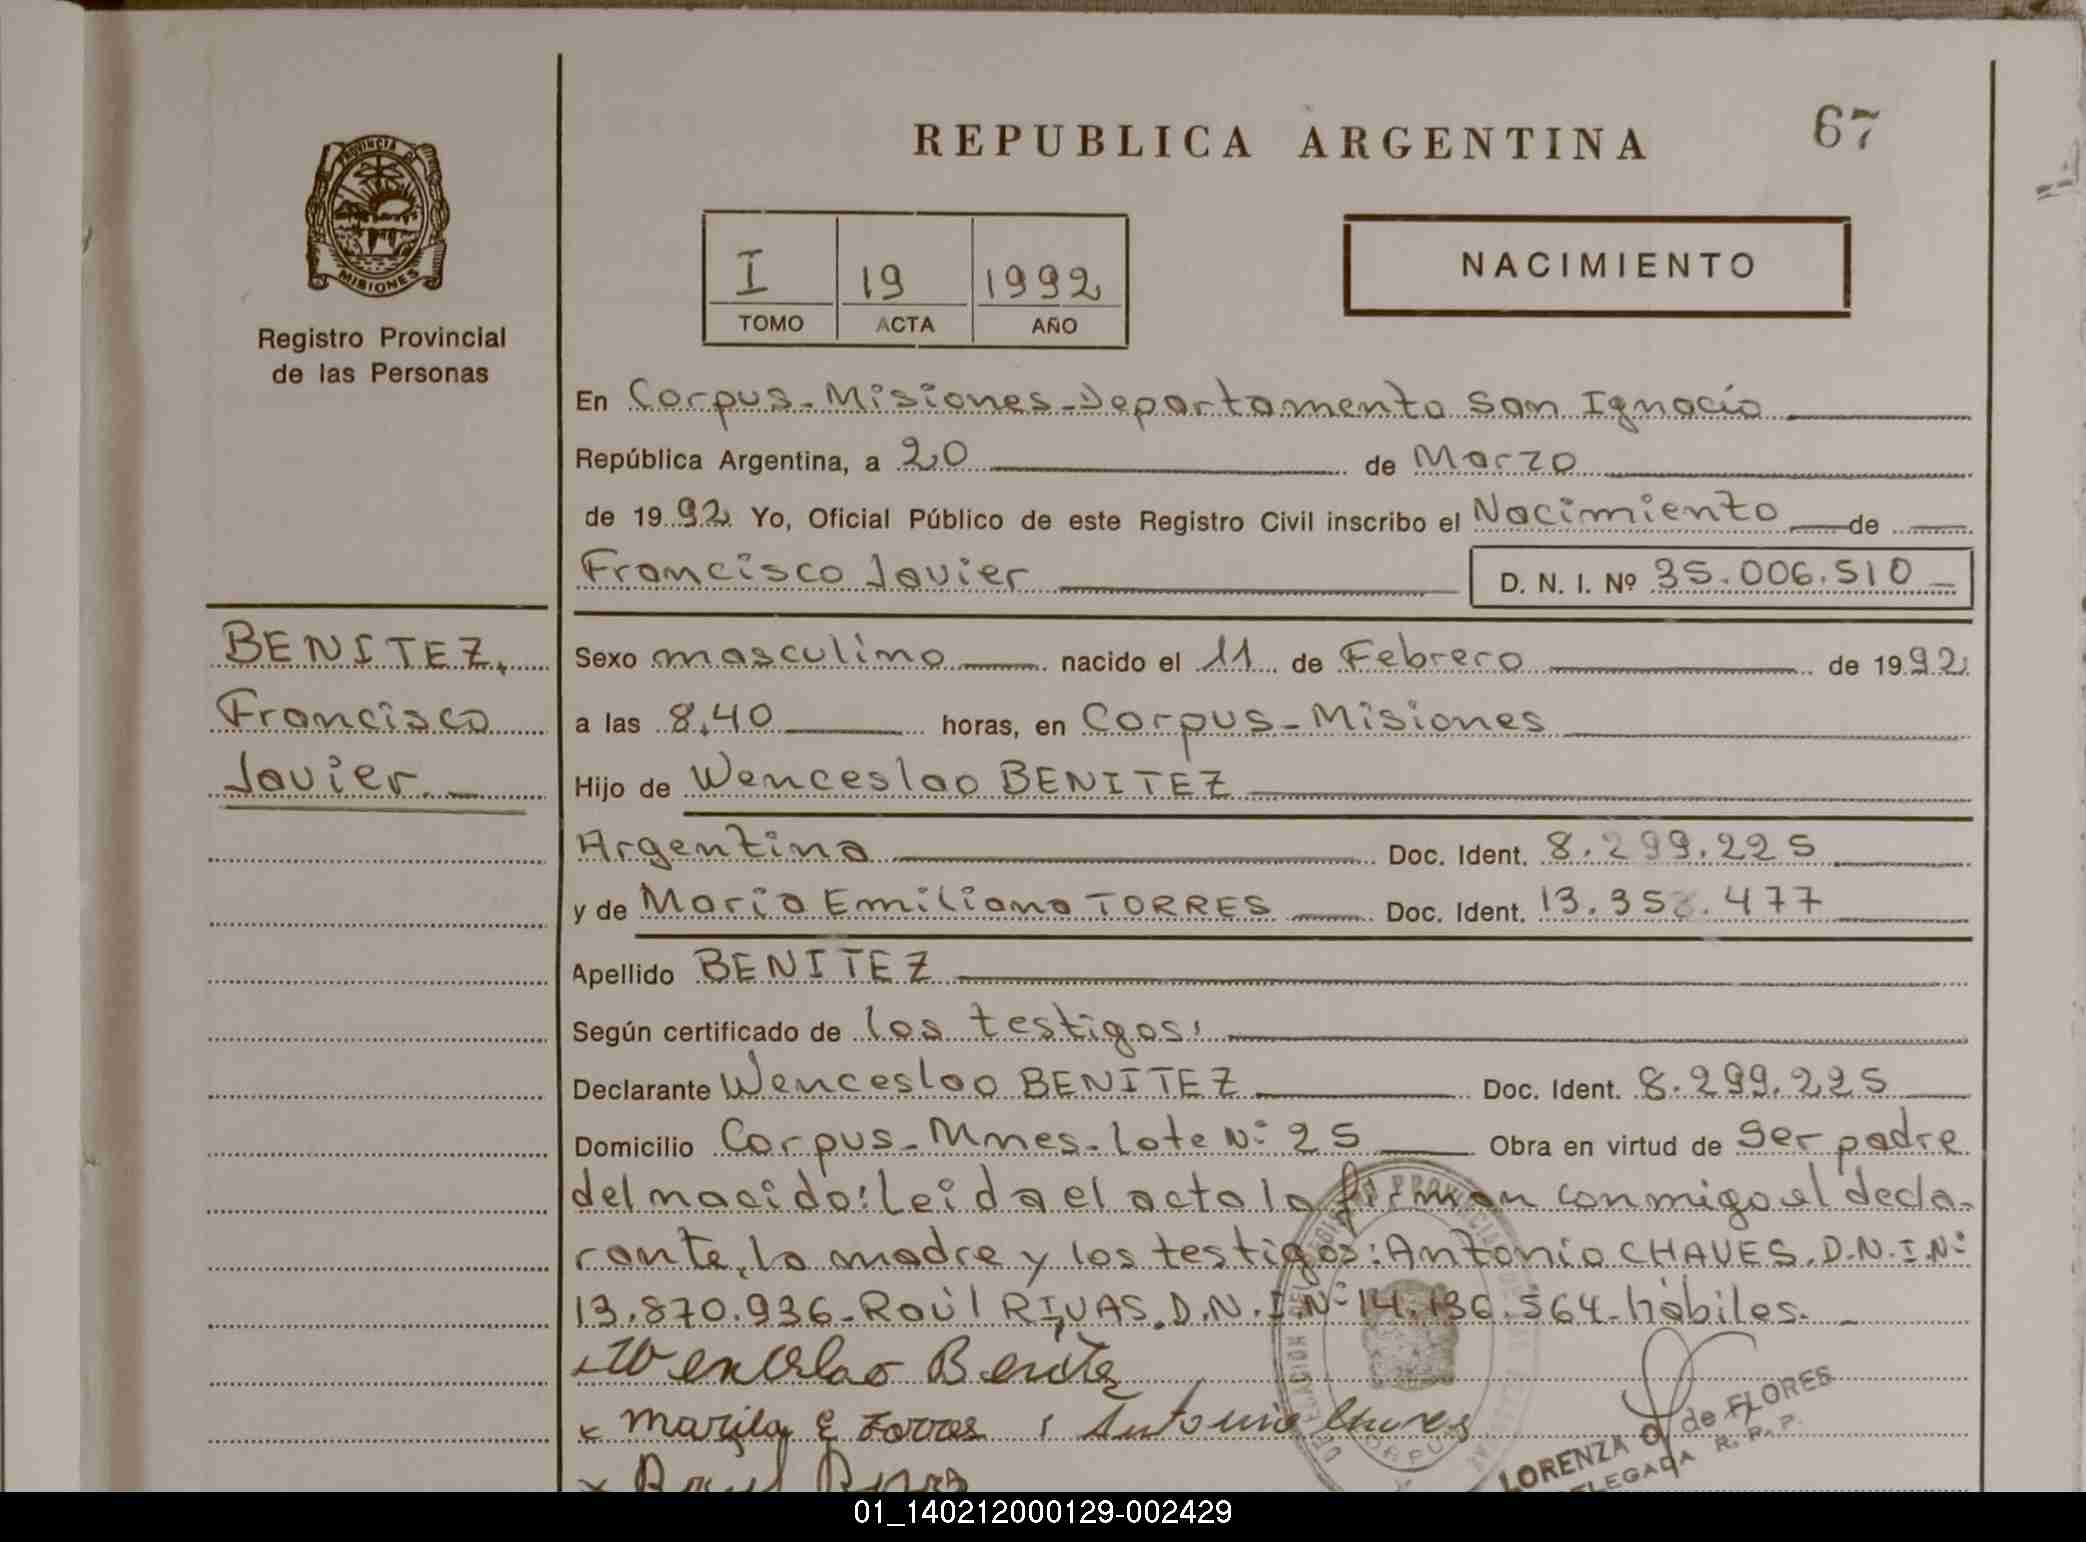 REPUBLICA ARGENTINA
67
PROVINCIA DE
MISIONES
Registro Provincial
de las Personas
I 19 1992
TOMO ACTA AÑO
NACIMIENTO
En Corpus-Misiones-Departamento San Ignacio
República Argentina, a 20 de Marzo
de 1992 Yo, Oficial Público de este Registro Civil inscribo el Nacimiento de
Francisco Javier D. N. I. Nº 35.006.510
BENITEZ,
Francisco
Javier.
Sexo masculino nacido el 11 de Febrero de 1992
a las 8,40 horas, en Corpus-Misiones
Hijo de Wenceslao BENITEZ
Argentina Doc. Ident. 8.299.225
y de Maria Emiliana TORRES Doc. Ident. 13.358.477
Apellido BENITEZ
Según certificado de los testigos:
Declarante Wenceslao BENITEZ Doc. Ident. 8.299.225
Domicilio Corpus-Mnes-Lote Nº 25 Obra en virtud de Ser padre
del nacido: Leida el acta la firman conmigo el decla-
rante, la madre y los testigos: Antonio CHAVES. D.N.I.Nº
13.870.936-Raúl RIVAS. D.N.I.Nº 14.136.564-hábiles.
Benitez
E Torres Antonio Chaves
LORENZA de FLORES
DELEGADA R. R. P.
CORPUS
01_140212000129-002429